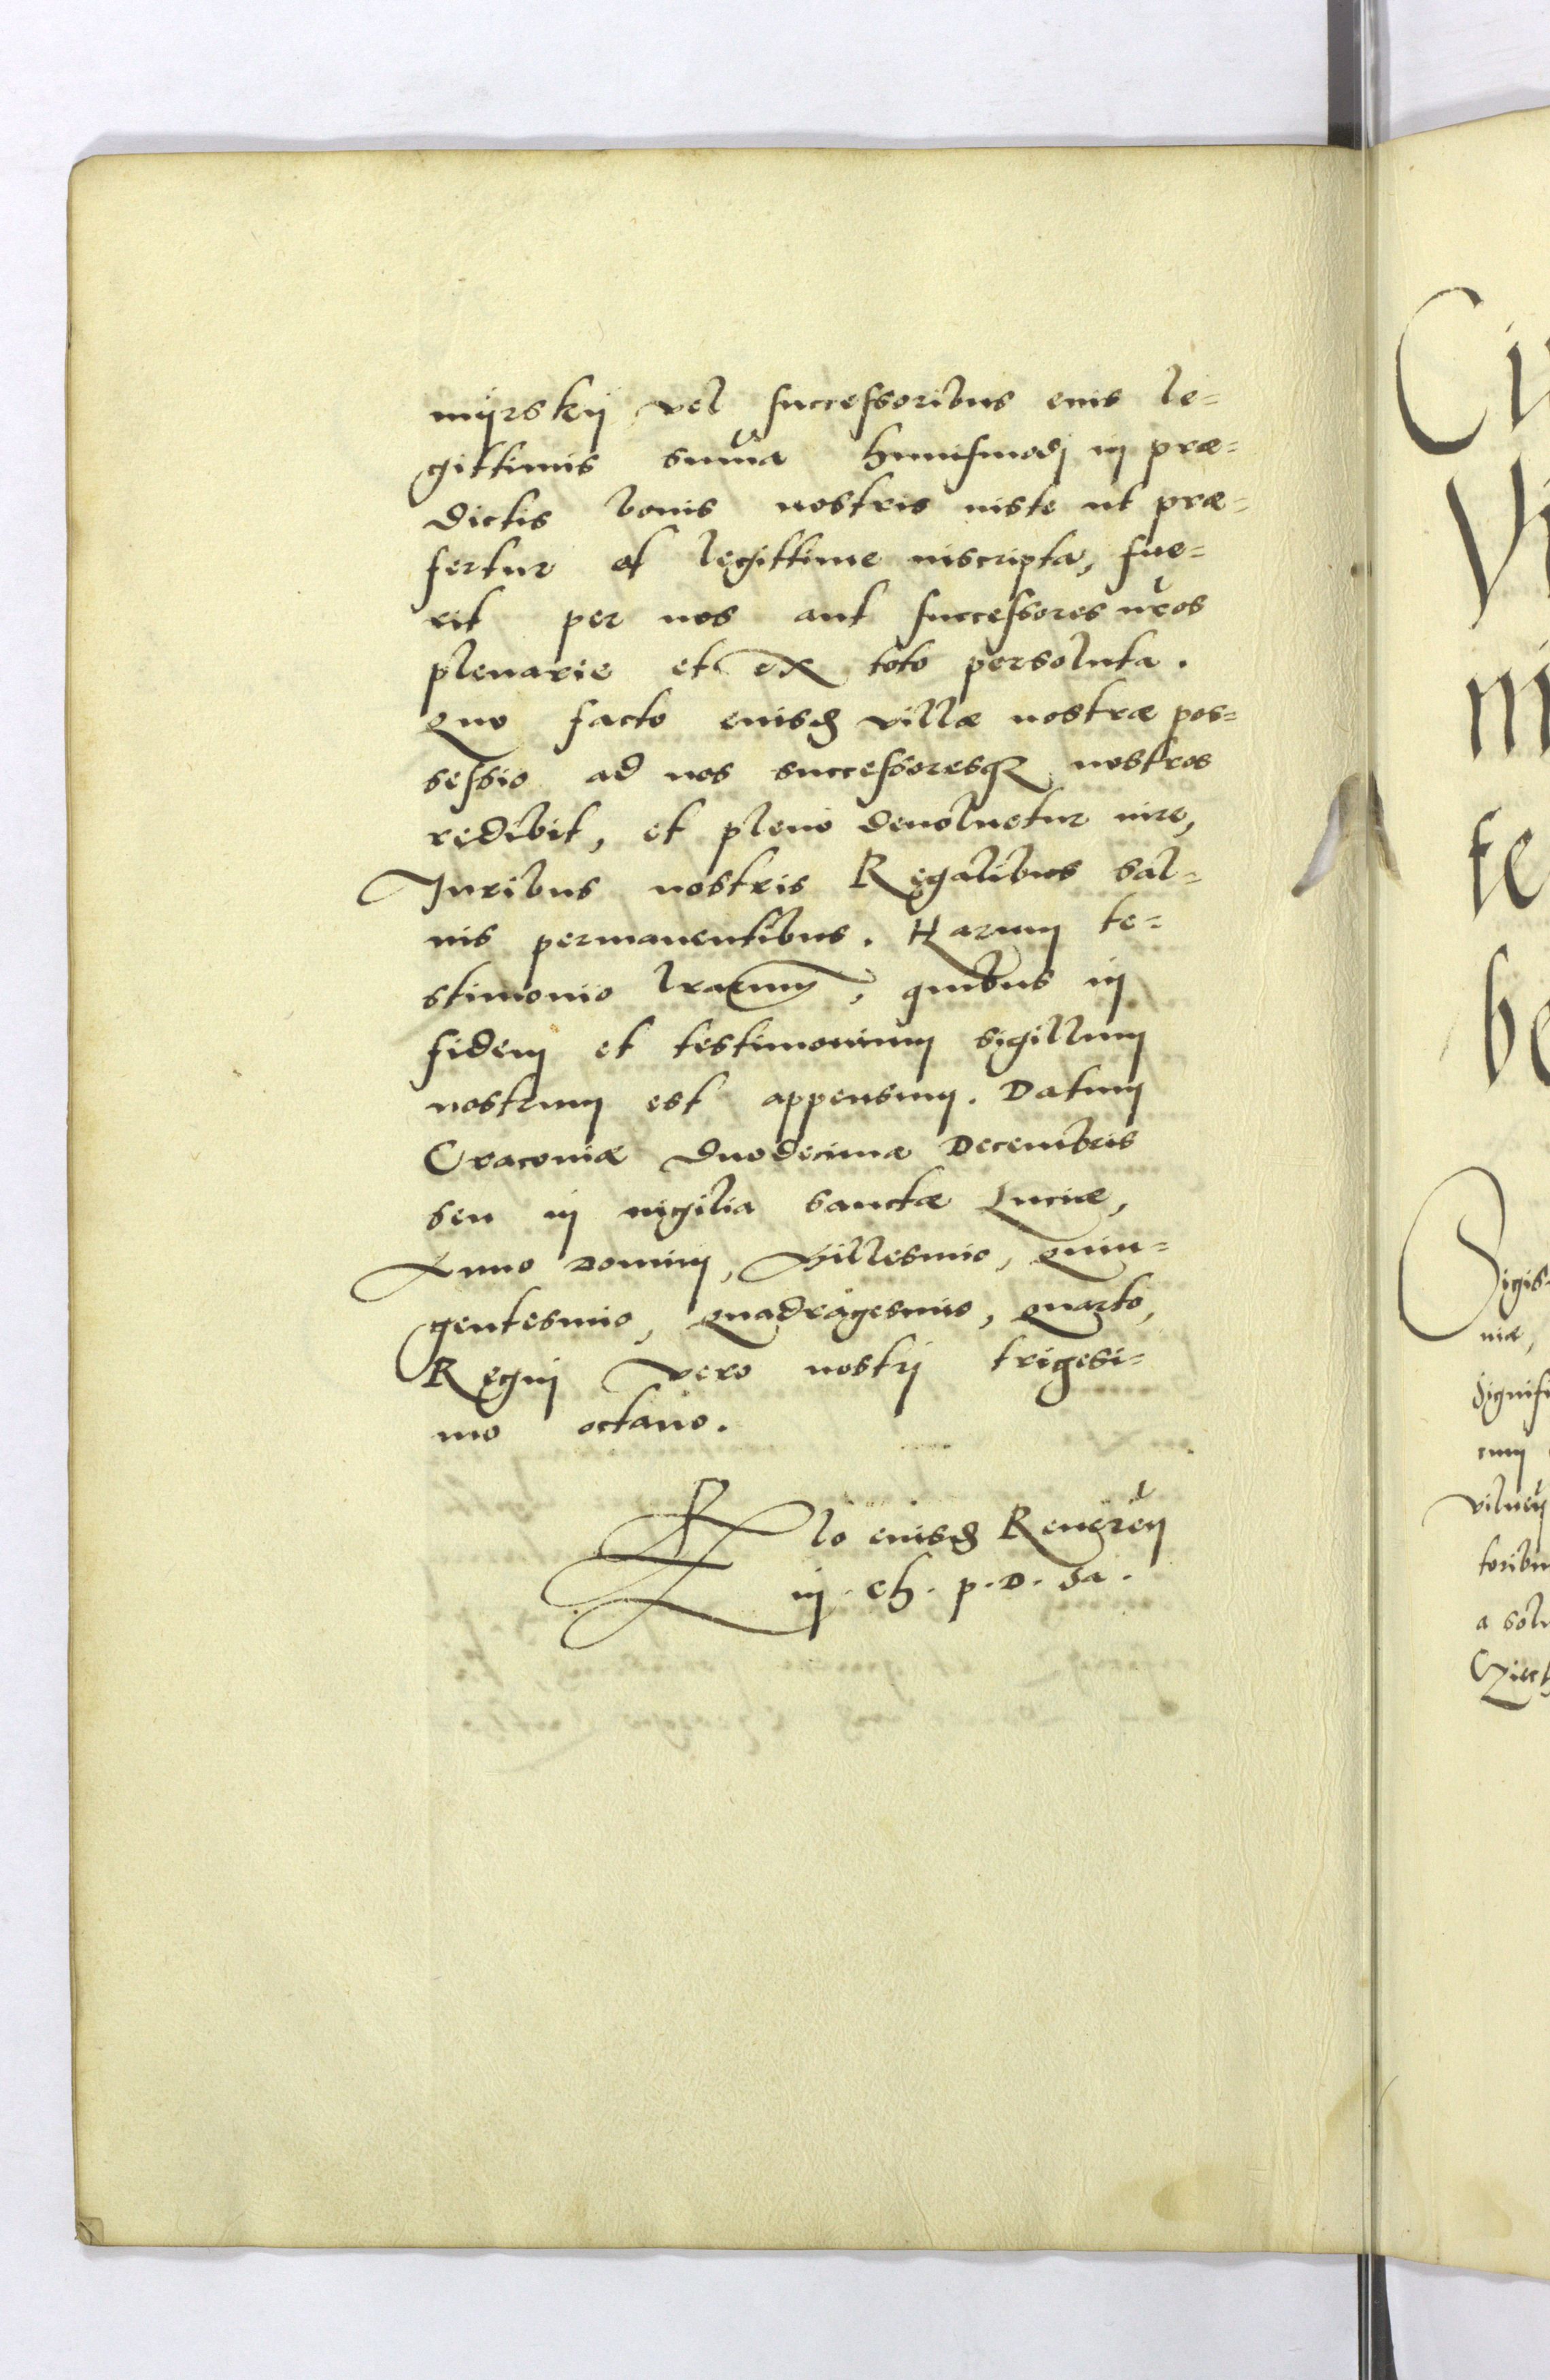 mijrskij vel successoribus eius le=
gittimis sum̃a huiusmodj in præ=
dictis bonis nostris iuste ut præ=
fertur et legittime inscripta, fue=
rit per nos aut successores nr̃os
plenarie et ex toto persoluta.
Quo facto eiusd villæ nostræ pos=
sessio ad nos successoresq nostros
redibit, et pleno deuoluetur iure,
Juribus nostris Regalibus sal=
uis permanentibus. Harum te=
stimonio lrarum, quibus in
fidem et testimonium sigillum
nostrum est appensum. Datum
Cracoviæ duodecima Decembris
seu in uigilia sanctæ Luciæ,
Anno Dominj, Millesimo, Quin=
gentesimo, Quadragesimo, Quarto,
Regnj vero nostrj trigesi=
mo octauo.
Rlo eiusd Reueren̄
in. ch. p. D. Sa.
Ci
Vi
ni
te
be
Sigis
niæ,
signifi
cum
toribu
a solu